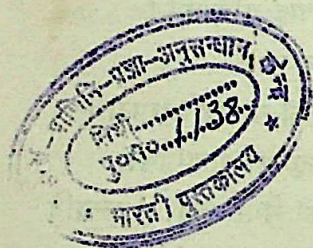 पाणिनि-प्रज्ञा-अनुसन्धान केन्द्र *
तिथि...............
पु०सं०....1138...
भारती पुस्तकालय